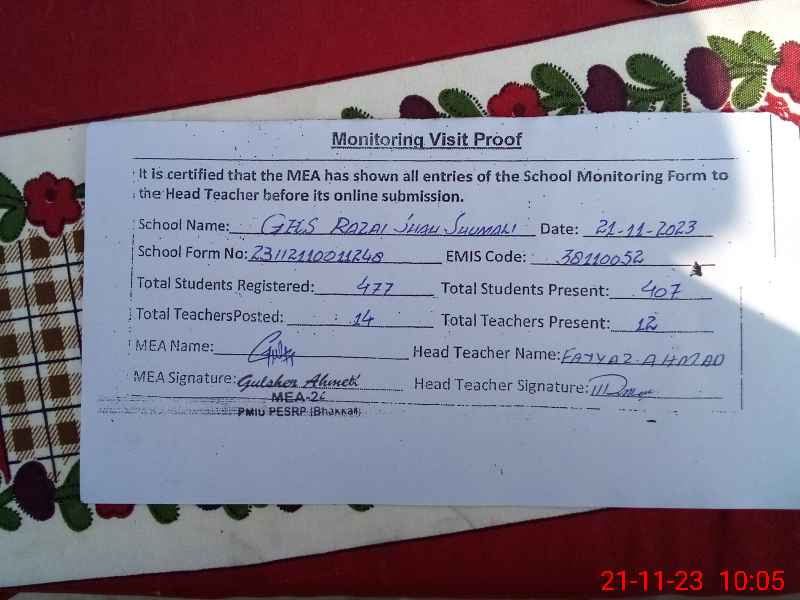 Monitoring Visit Proof
It is certified that the MEA has shown all entries of the School Monitoring Form to
the Head Teacher before its online submission.
School Name: GHS RAZAI SHAH SHUMALI Date: 21-11-2023
School Form No: 23112110011248 EMIS Code: 38110052
Total Students Registered: 477 Total Students Present: 407
Total TeachersPosted: 14 Total Teachers Present: 12
MEA Name: Head Teacher Name: FAYYAZ AHMAD
MEA Signature: Gulsher Ahmed Head Teacher Signature:
MEA-26
PMIU PESRP (Bhakkar)
21-11-23 10:05